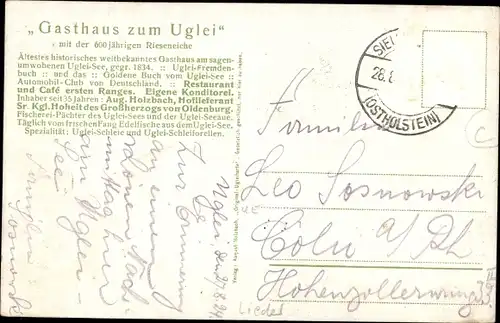 „Gasthaus zum Uglei“
: mit der 600 jährigen Rieseneiche
Ältestes historisches weltbekanntes Gasthaus am sagen-
umwobenen Uglei-See, gegr. 1834. :: Uglei-Fremden-
buch :: und das :: Goldene Buch vom Uglei-See ::
Automobil-Club von Deutschland. :: Restaurant
und Café ersten Ranges. Eigene Konditorei.
Inhaber seit 35 Jahren: Aug. Holzbach, Hotlieferant
Sr. Kgl. Hoheit des Großherzogs von Oldenburg.
Fischerei-Pächter des Uglei-Sees und der Uglei-Seeaue.
Täglich vom frischen Fang Edelfische aus dem Uglei-See.
Spezialität: Uglei-Schleie und Uglei-Schleiforellen.
Uglei, den 27.8.24
Zur Erinnerung
an einen
schönen Nach-
mittag hier
am Uglei-
See
Sosnowski
SIE
26.8
(OSTHOLSTEIN)
Familie
Leo Sosnowski
Cöln a/Rh
Hohenzollernring
Lieder